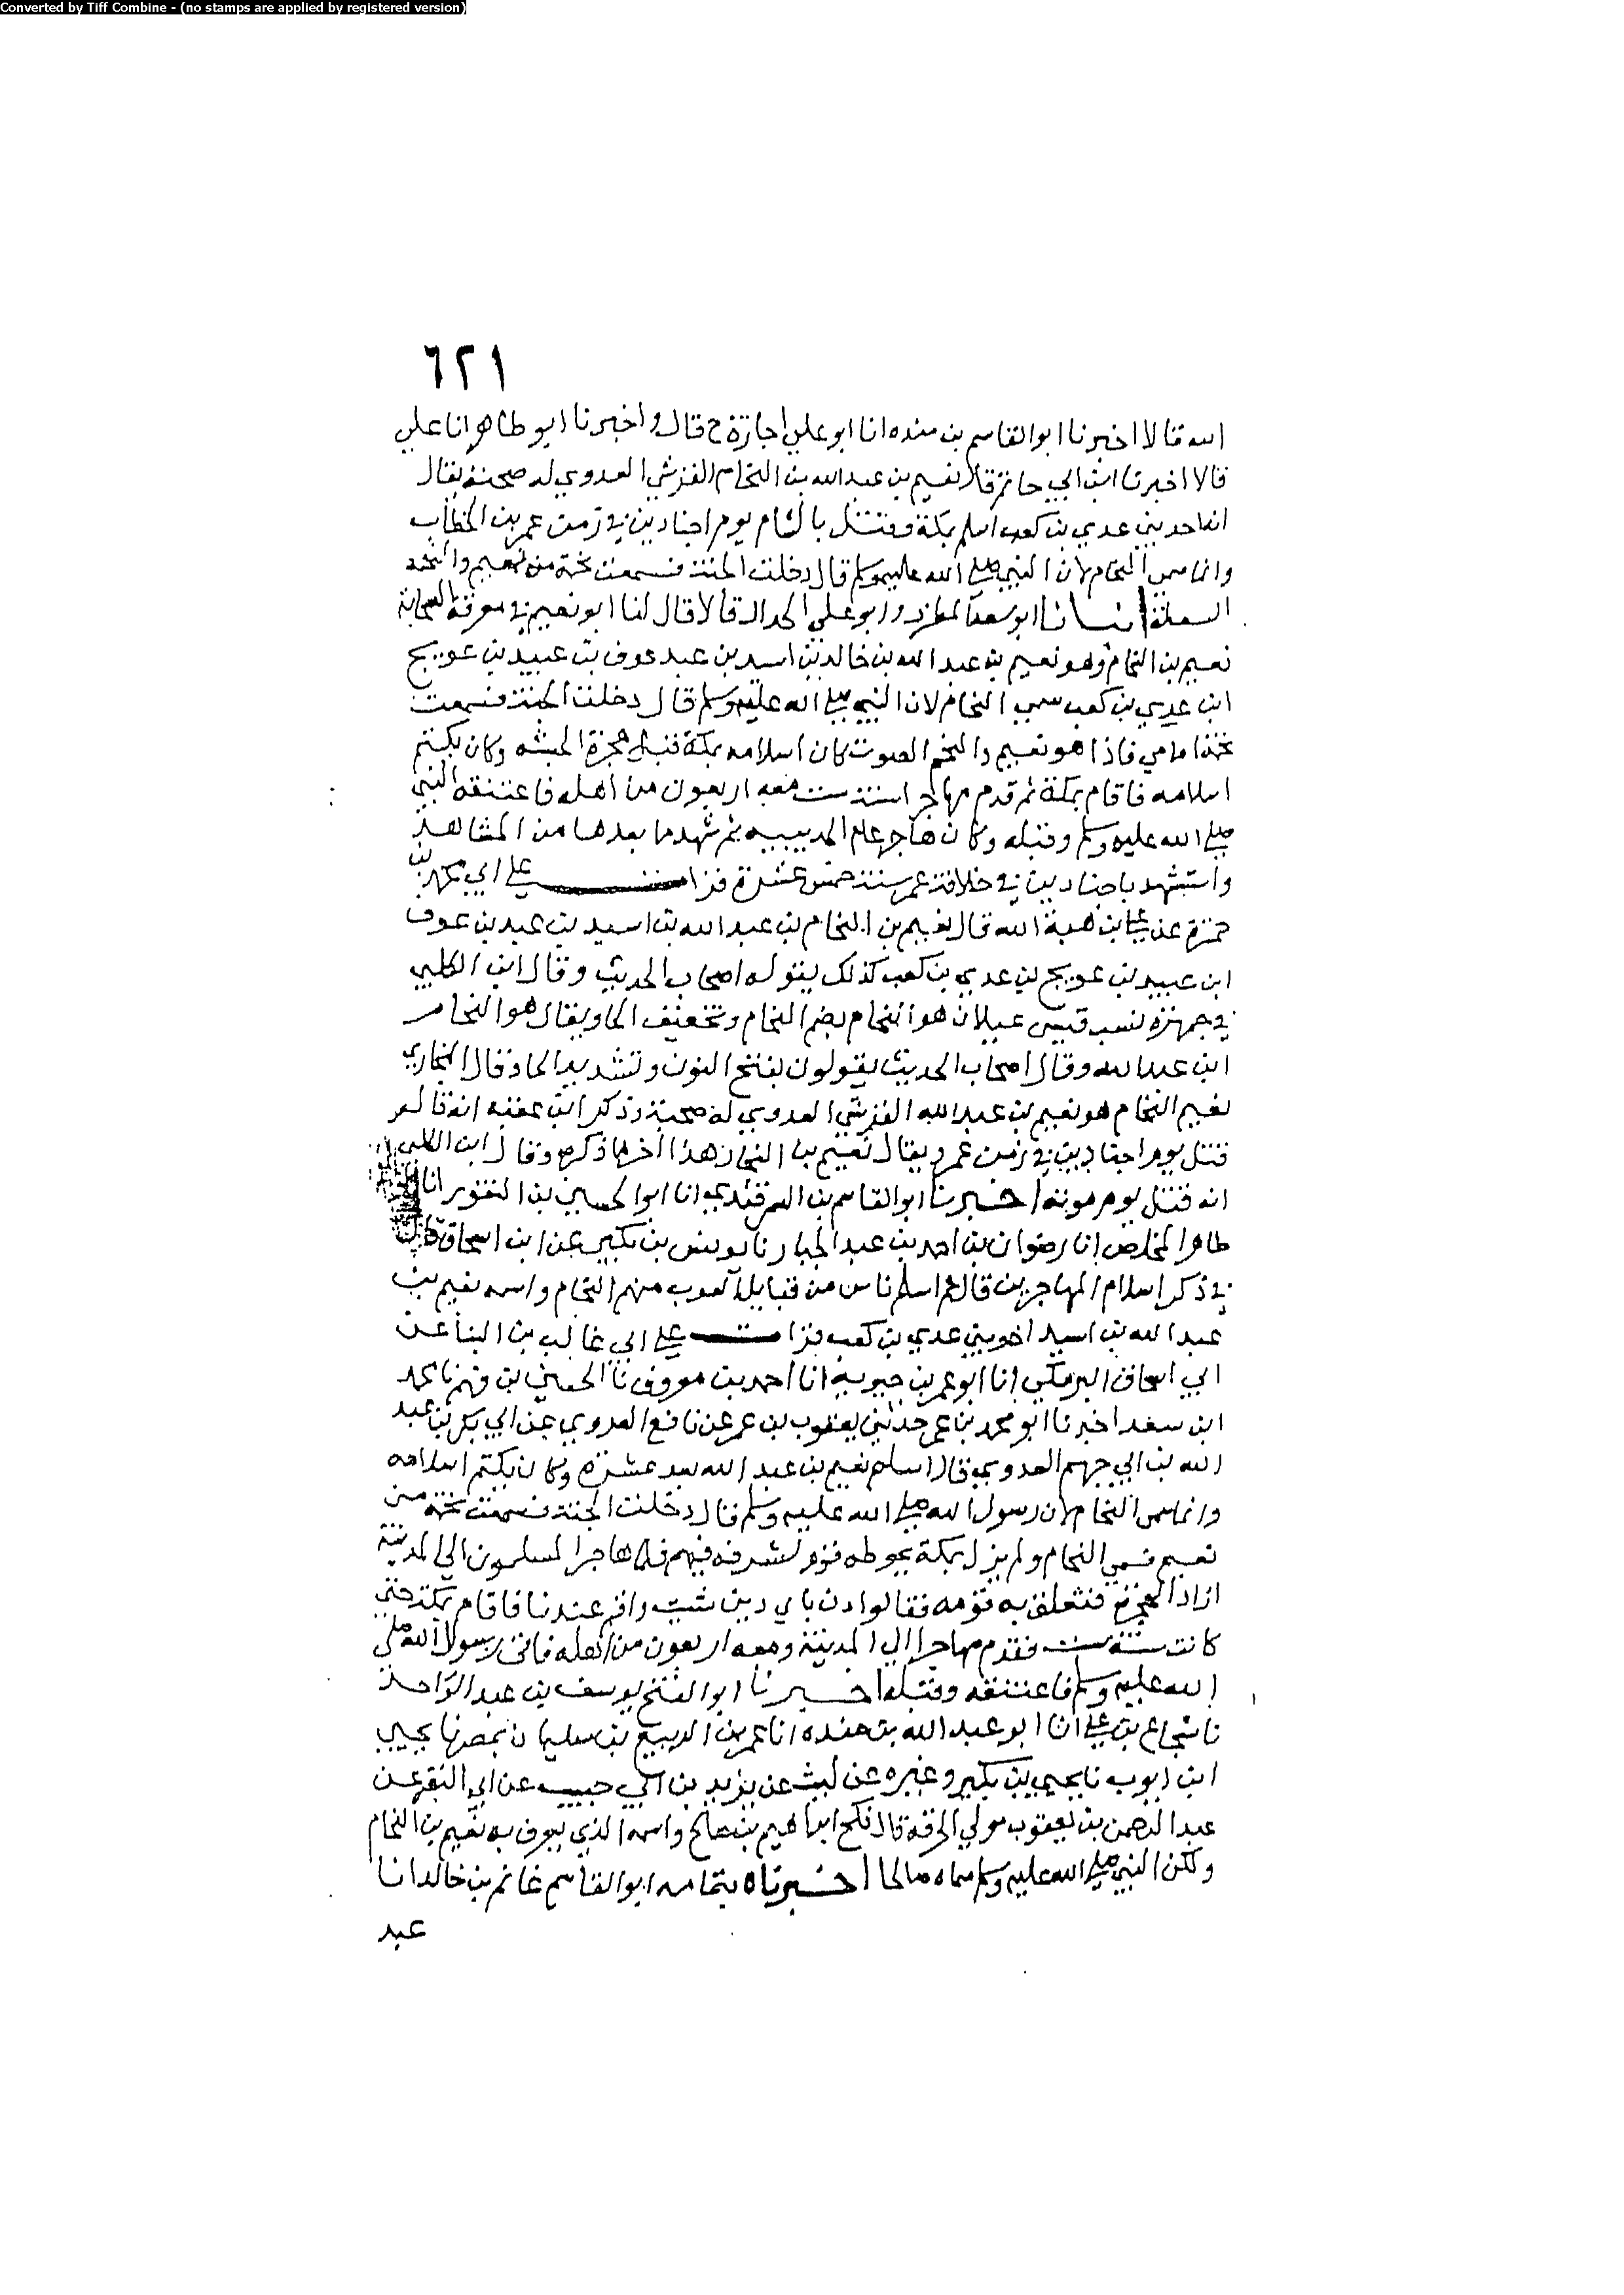 Converted by Tiff Combine - (no stamps are applied by registered version)
٦٢١
الله قالا اخبرنا ابو القاسم بن منده انا ابو علي اجازة ح قال واخبرنا ابو طاهر انا علي
قالا اخبرنا ابن ابي حاتم قال نعيم بن عبد الله بن النحام القرشي العدوي له صحبة يقال
انه احد بني عدي بن كعب اسلم بمكة وقتل بالشام يوم اجنادين في زمن عمر بن الخطاب
وانما سمي النحام لان النبي صلى الله عليه وسلم قال دخلت الجنة فسمعت نحمة من نعيم والنحمة
السعلة انبانا ابو سعد المطرز وابو علي الحداد قالا قال لنا ابو نعيم في معرفة الصحابة
نعيم بن النحام وهو نعيم بن عبد الله بن خالد بن اسد بن عبد عوف بن عبيد بن عويج
ابن عدي بن كعب سمي النحام لان النبي صلى الله عليه وسلم قال دخلت الجنة فسمعت
نحمة امامي فاذا هو نعيم والنحم الصوت كان اسلامه بمكة قبل هجرة الحبشه وكان يكتم
اسلامه فاقام بمكة ثم قدم مهاجرا سنة ست معه اربعون من اهله فاعتنقه النبي
صلى الله عليه وسلم وقبله وكان هاجر عام الحديبيه ثم شهد ما بعدها من المشاهد
واستشهد باجنادين في خلافة عمر سنة خمس عشرة قرات على ابي محمد بن
حمزة عن علي بن هبة الله قال نعيم بن النحام بن عبد الله بن اسيد بن عبد بن عوف
ابن عبيد بن عويج بن عدي بن كعب كذلك يقوله اصحاب الحديث وقال ابن الكلبي
في جمهرة نسب قيس عيلان هو النحام بضم النحام وتخفيف الحا ويقال هو النحام
ابن عبد الله وقال اصحاب الحديث يقولون بفتح النون وتشديد الحا وقال البخاري
نعيم النحام هو نعيم بن عبد الله القرشي العدوي له صحبة وذكر ابن عقبه انه قال
قتل يوم اجنادين في زمن عمر ويقال نعيم بن النحام هذا اخر ما ذكره وقال ابن الكلبي
انه قتل يوم موته اخبرنا ابو القاسم بن السمرقندي انا ابو الحسين بن النقور انا
طاهر المخلص انا رضوان بن احمد بن عبد الجبار نا يونس بن بكير عن ابن اسحاق قال
في ذكر اسلام المهاجرين قال ثم اسلم ناس من قبايل العرب منهم النحام واسمه نعيم بن
عبد الله بن اسيد اخو بني عدي بن كعب قرات على ابي غالب بن البنا عن
ابي اسحاق البرمكي انا ابو عمر بن حيويه انا احمد بن معروف نا الحسين بن فهم نا محمد
ابن سعد اخبرنا ابو محمد بن عمر حدثني يعقوب بن عمر عن نافع العدوي عن ابي بكر بن عبد
الله بن ابي جهم العدوي قال اسلم نعيم بن عبد الله بعد عشرة وكان يكتم اسلامه
وانما سمي النحام لان رسول الله صلى الله عليه وسلم قال دخلت الجنة فسمعت نحمة من
نعيم فسمي النحام ولم يزل بمكة يحوطه قومه لشرفه فيهم فلما هاجر المسلمون الى المدينة
اراد الهجرة فتعلق به قومه فقالوا دن باي دين شيت واقم عندنا فاقام بمكة حتى
كانت سنة ست فقدم مهاجرا الى المدينة ومعه اربعون من اهله فاتى رسول الله صلى
الله عليه وسلم فاعتنقه وقبله اخبرنا ابو الفتح يوسف بن عبد الواحد
نا شجاع بن علي انا ابو عبد الله بن منده انا عمر بن الربيع بن سليمان بمصر نا يحيى
ابن ايوب نا يحيى بن بكير وغيره عن ليث عن يزيد بن ابي حبيب عن ابي النضر عن
عبد الرحمن بن يعقوب مولي الحرقة قال نكح ابراهيم بن صالح واسمه الذي يعرف به نعيم بن النحام
ولكن النبي صلى الله عليه وسلم سماه صالحا اخبرناه بتمامه ابو القاسم غانم بن خالد انا
عبد